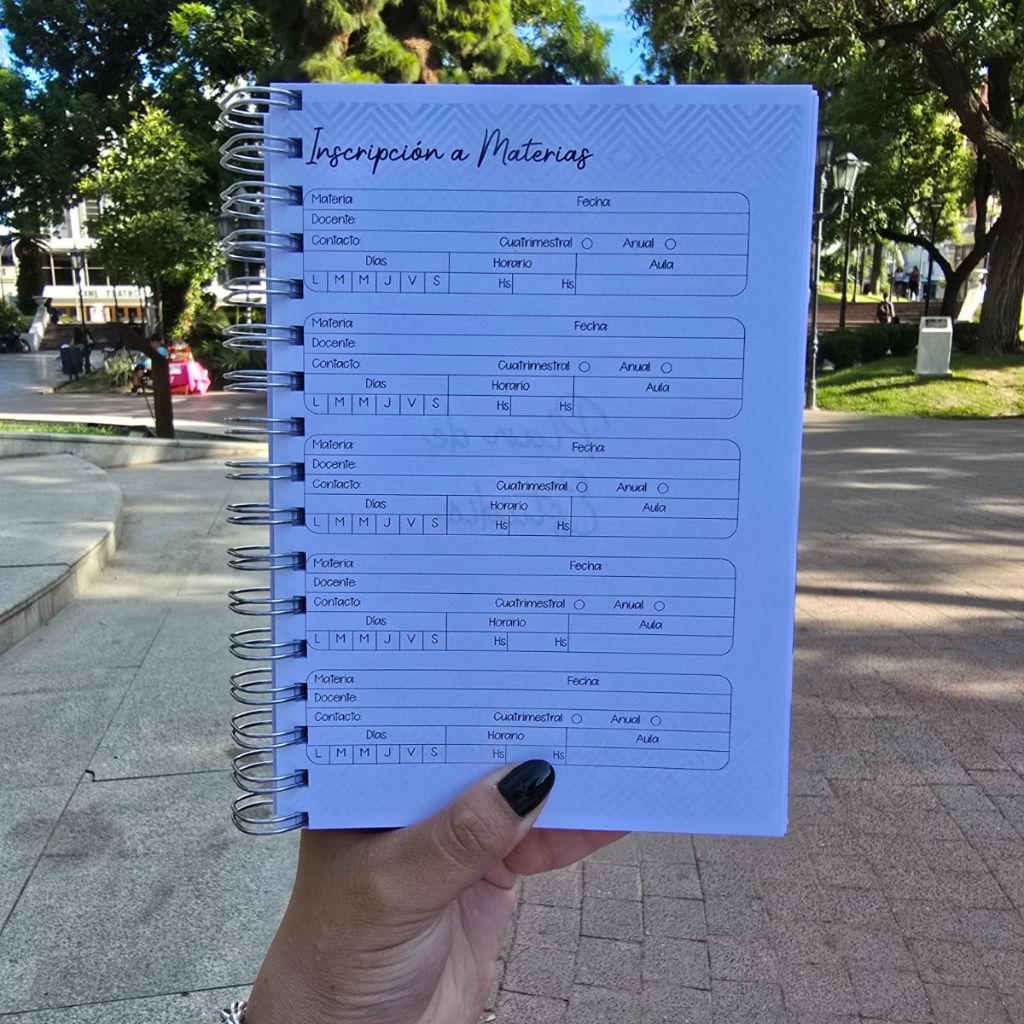 Inscripción a Materias
Materia: Fecha:
Docente:
Contacto: Cuatrimestral Anual
Días Horario Aula
L M M J V S Hs Hs
Materia: Fecha:
Docente:
Contacto: Cuatrimestral Anual
Días Horario Aula
L M M J V S Hs Hs
Materia: Fecha:
Docente:
Contacto: Cuatrimestral Anual
Días Horario Aula
L M M J V S Hs Hs
Materia: Fecha:
Docente:
Contacto: Cuatrimestral Anual
Días Horario Aula
L M M J V S Hs Hs
Materia: Fecha:
Docente:
Contacto: Cuatrimestral Anual
Días Horario Aula
L M M J V S Hs Hs